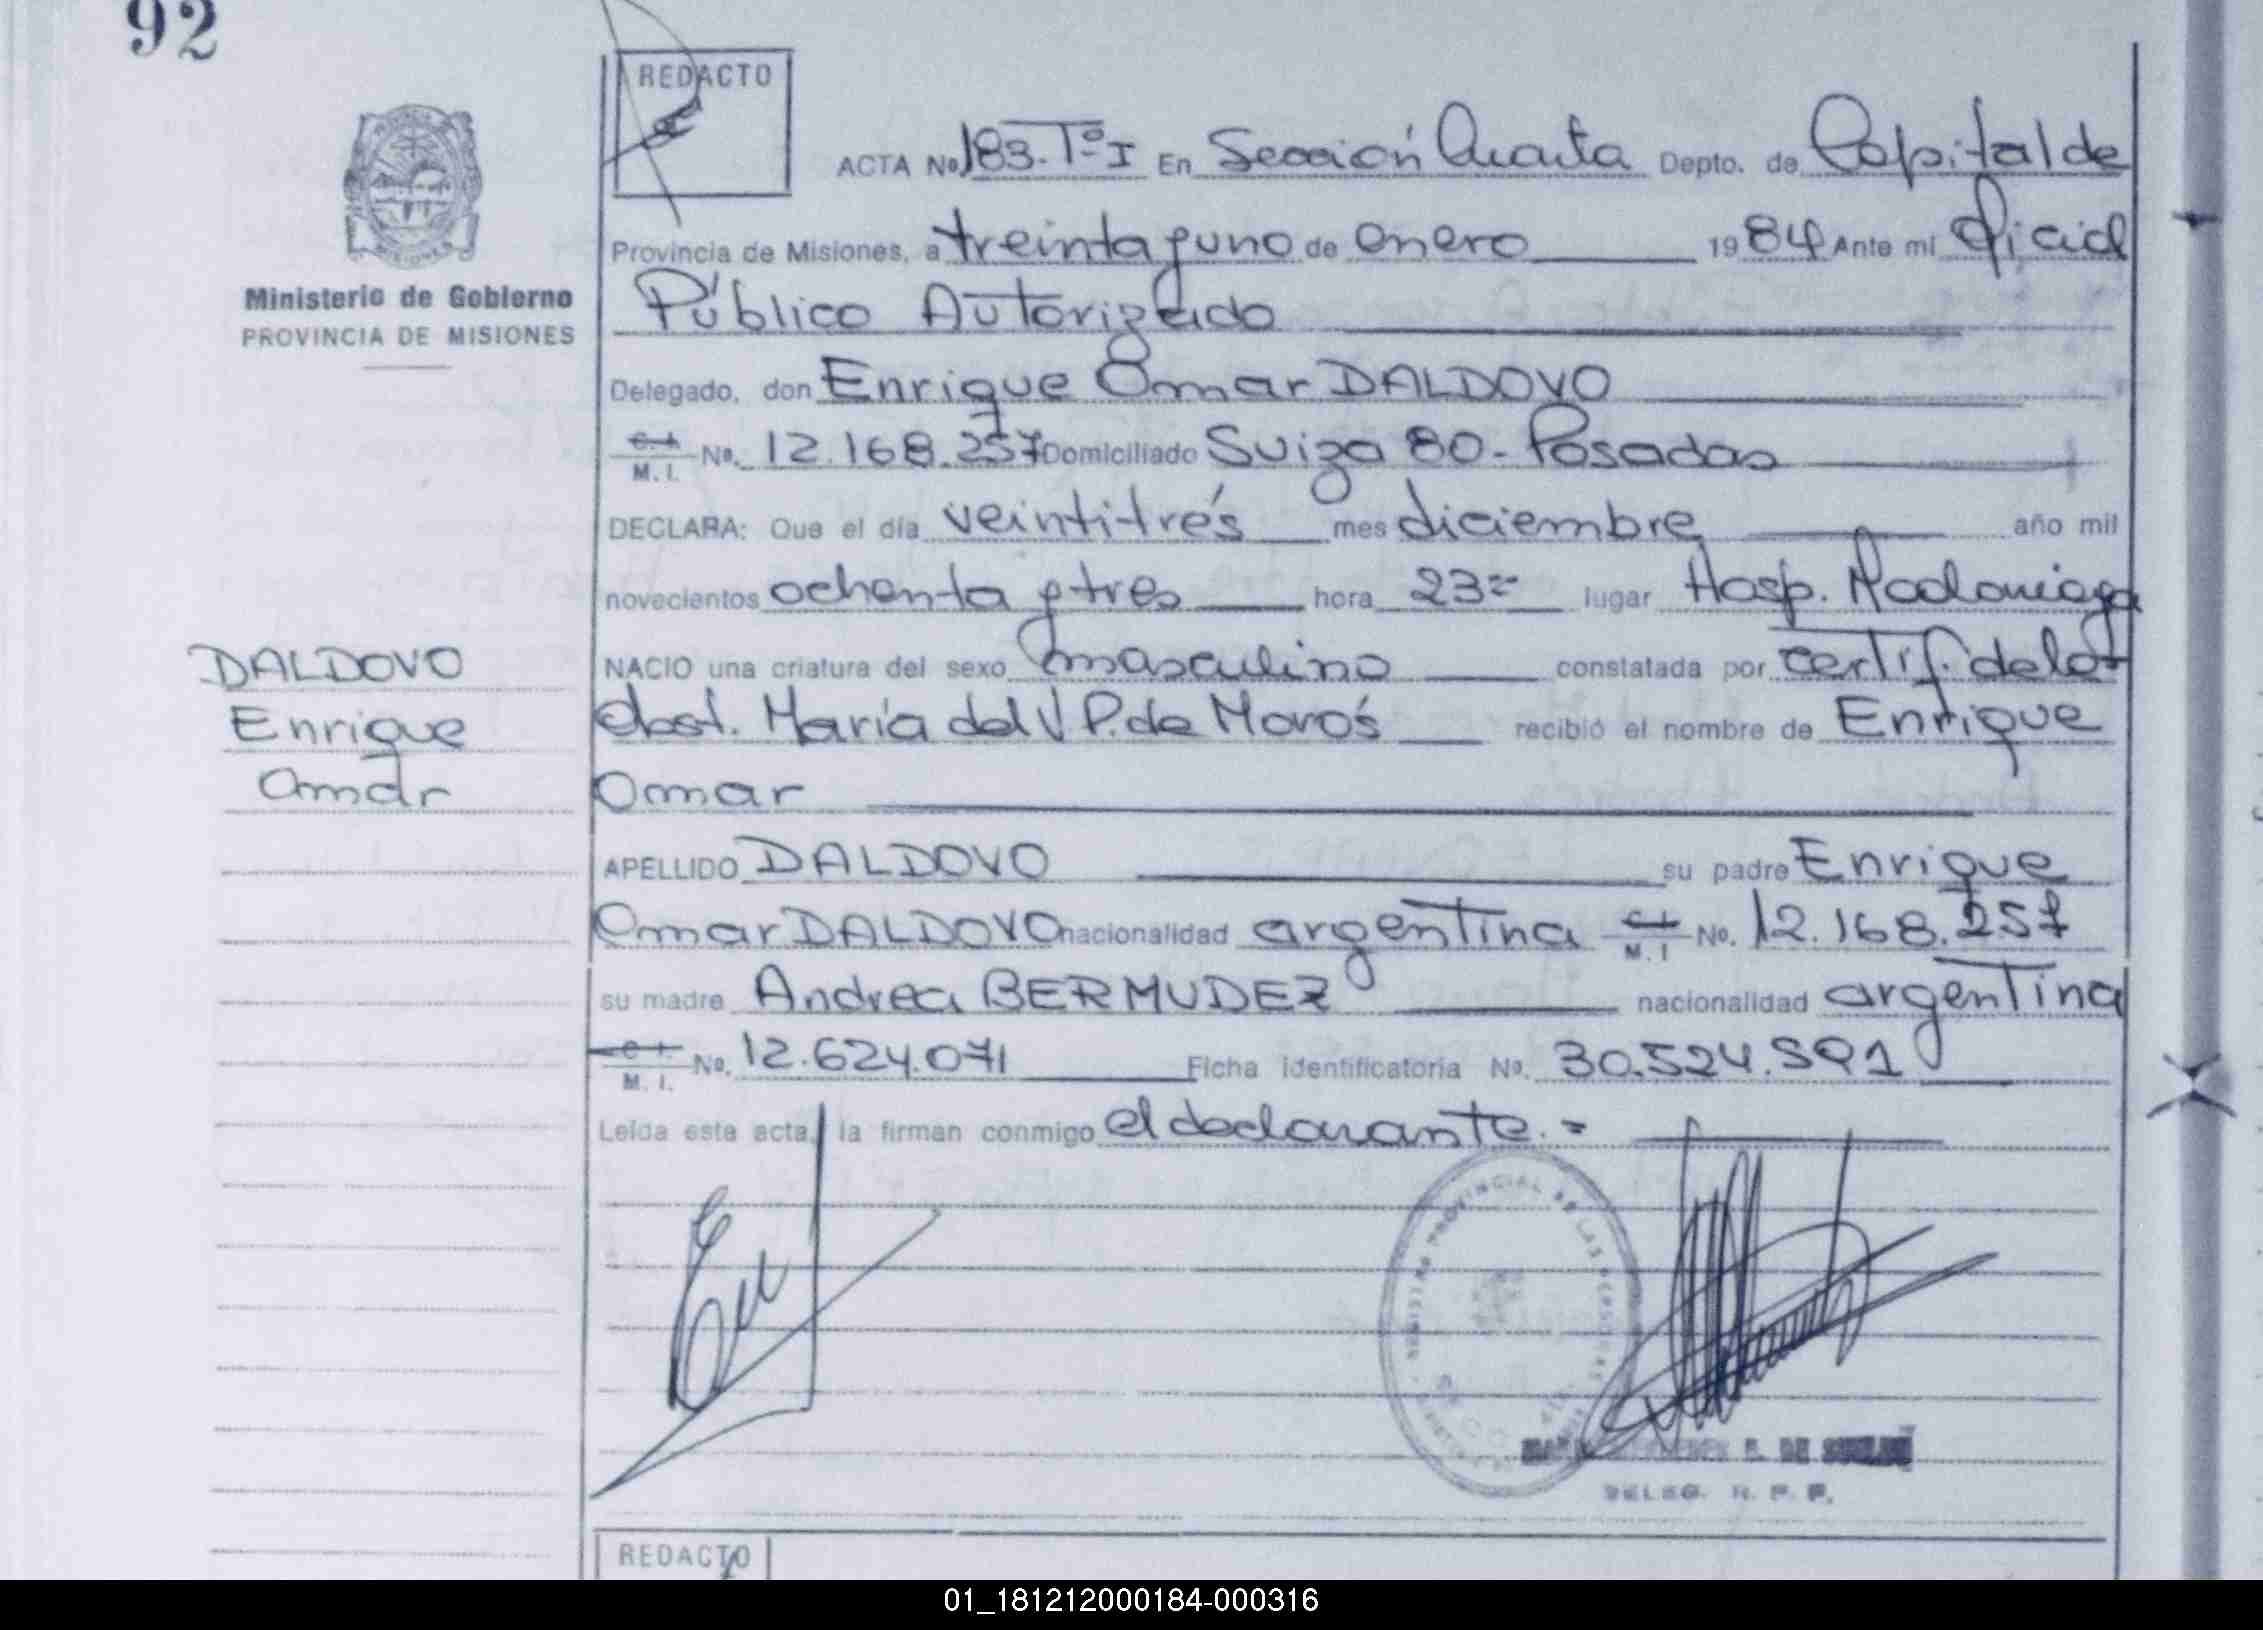 92
REDACTO
ACTA No. 183. Tº I En Sección Cuarta Depto. de Capital de
Ministerio de Gobierno
PROVINCIA DE MISIONES
Provincia de Misiones, a treinta y uno de enero 1984 Ante mi Oficial
Público Autorizado
Delegado, don Enrique Omar DALDOVO
C. I. M. I. No. 12.168.257 Domiciliado Suiza 80 - Posadas
DECLARA: Que el día veintitrés mes diciembre año mil
novecientos ochenta y tres hora 23 lugar Hosp. Madariaga
NACIO una criatura del sexo masculino constatada por certif. de la
obst. María del V P. de Morós recibió el nombre de Enrique
Omar
DALDOVO
Enrique
Omar
APELLIDO DALDOVO su padre Enrique
Omar DALDOVO nacionalidad argentina C. I. M. I No. 12.168.257
su madre Andrea BERMUDEZ nacionalidad argentina
C. I. M. I. No. 12.624.071 Ficha identificatoria No. 30.524.591
Leída este acta, la firman conmigo el declarante. =
PROVINCIAL DE LAS PERSONAS
DE
DELEG. R. P. P.
REDACTO
01_181212000184-000316